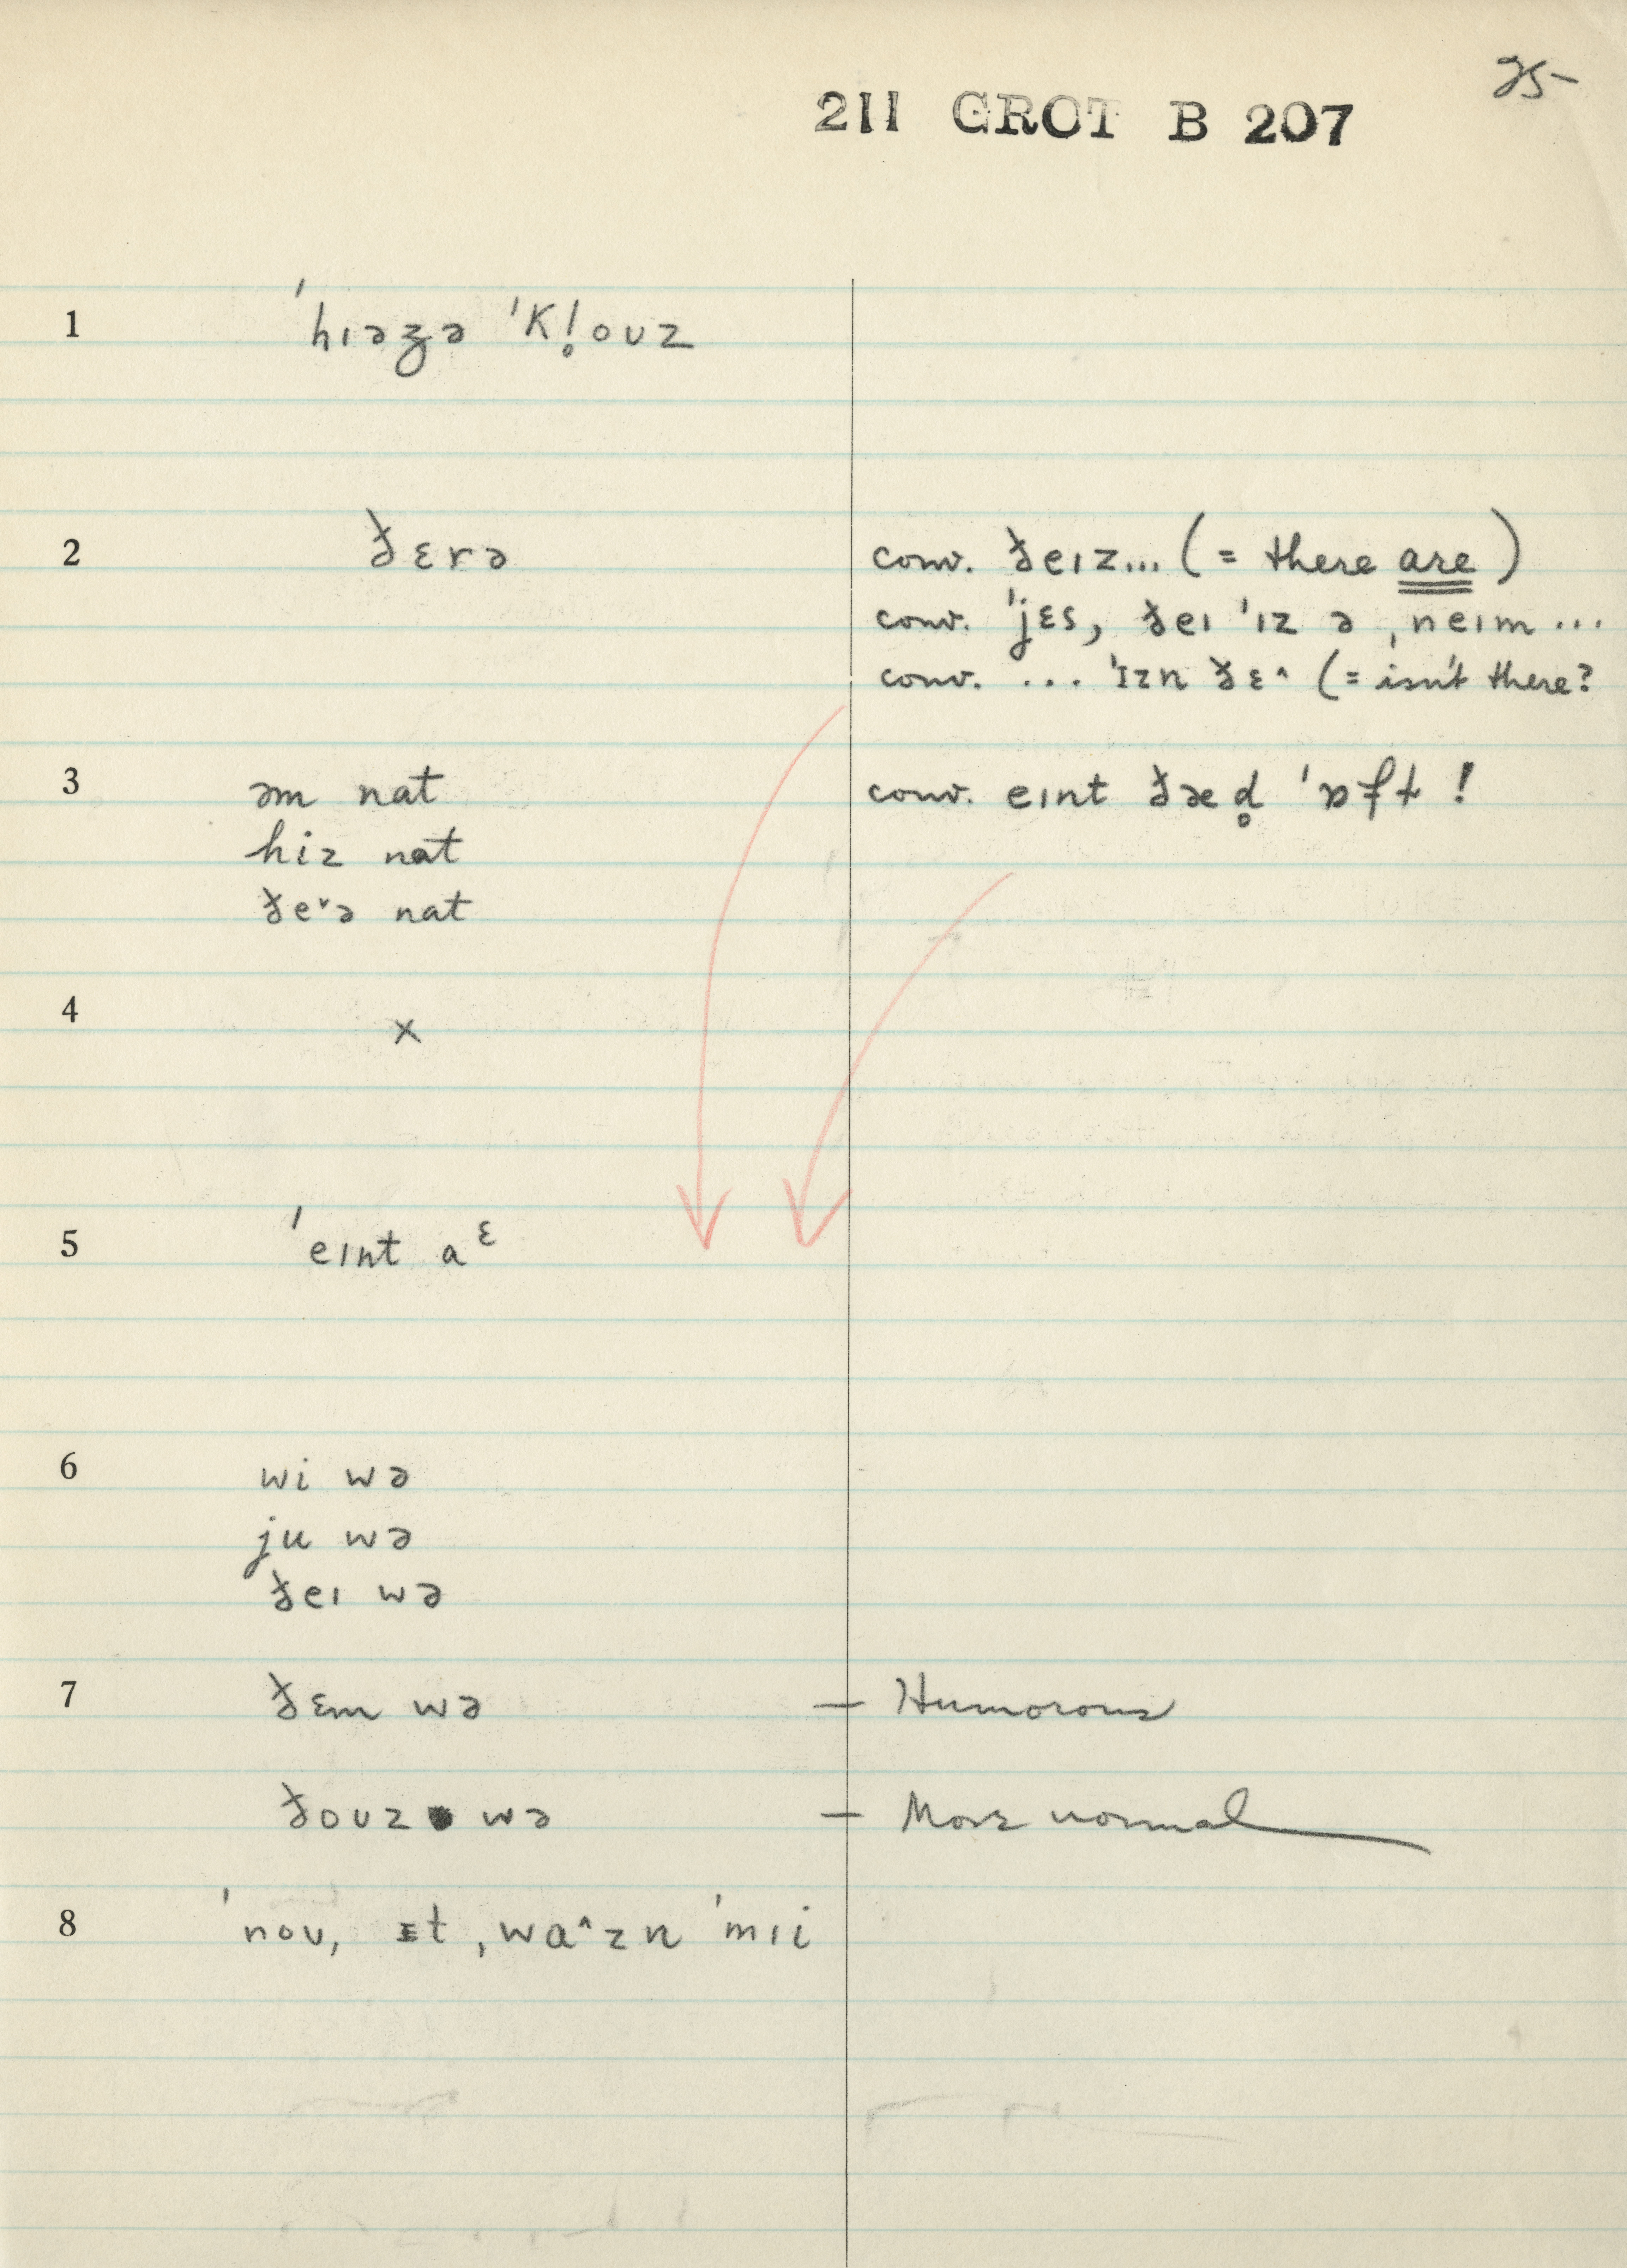 25-
211 GROT B 207
1 ˈhɪəzə ˈkl̥oʊz
2 ðɛrə conv. ðeɪz... (= there are)
conv. ˈjɛs, ðeɪ ˈɪz ə ˌneɪm ...
conv. ... ˈɪzn ðɛ^ (= isn't there?
3 əm nat conv. eɪnt ðæd̥ ˈɒft !
hiz nat
ðe˅ə nat
4 x
5 ˈeɪnt aᵋ
6 wi wə
ju wə
ðeɪ wə
7 ðɛm wə — Humorous
ðoʊz wə — More normal
8 ˈnoʊ, ɪt ˌwa^zn ˈmɪi